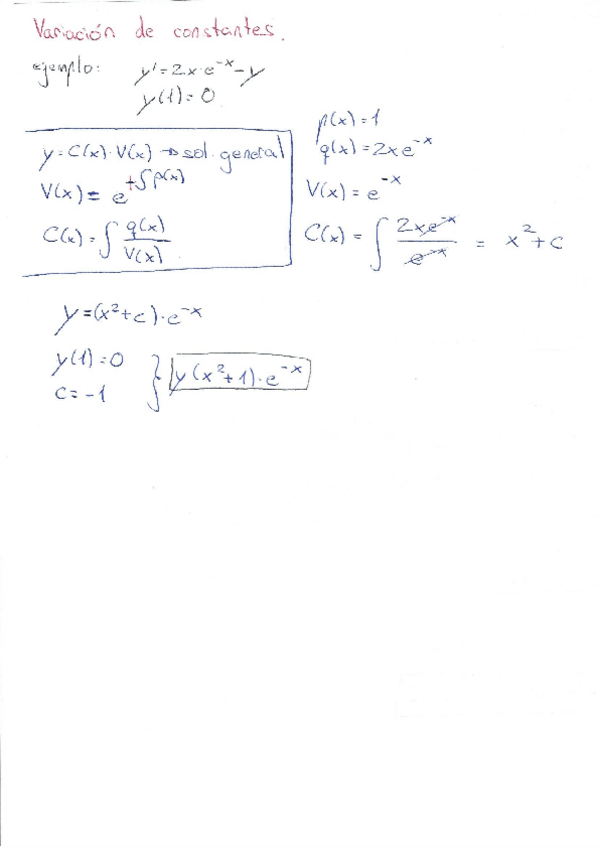 Variación de constantes.
ejemplo: y' = 2x·e^-x - y
y(1) = 0
y = C(x)·V(x) → sol. general
V(x) = e^+∫p(x)
C(x) = ∫ q(x)/V(x)
p(x) = 1
q(x) = 2xe^-x
V(x) = e^-x
C(x) = ∫ 2xe^-x/e^-x = x^2 + c
y = (x^2 + c)·e^-x
y(1) = 0
c = -1
y(x^2 + 1)·e^-x